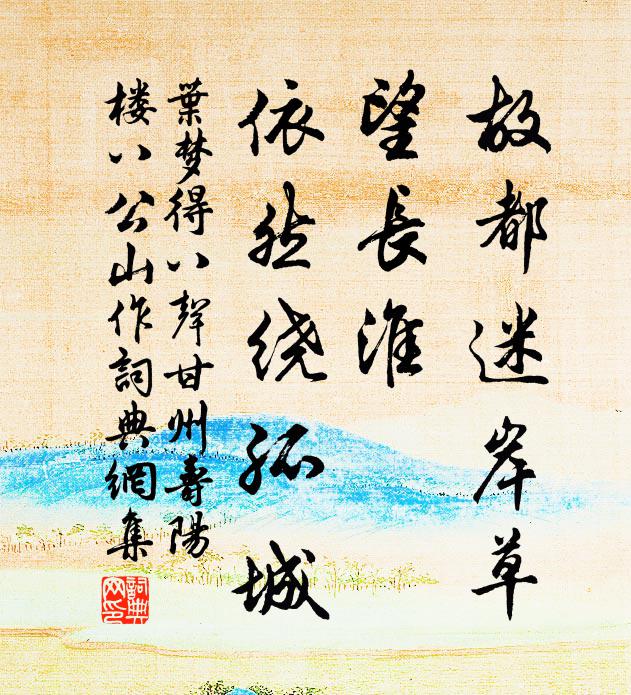 故都迷岸草
望長淮
依然绕孤城
葉梦得八聲甘州壽陽
楼八公山作詞典網集
詞典网印